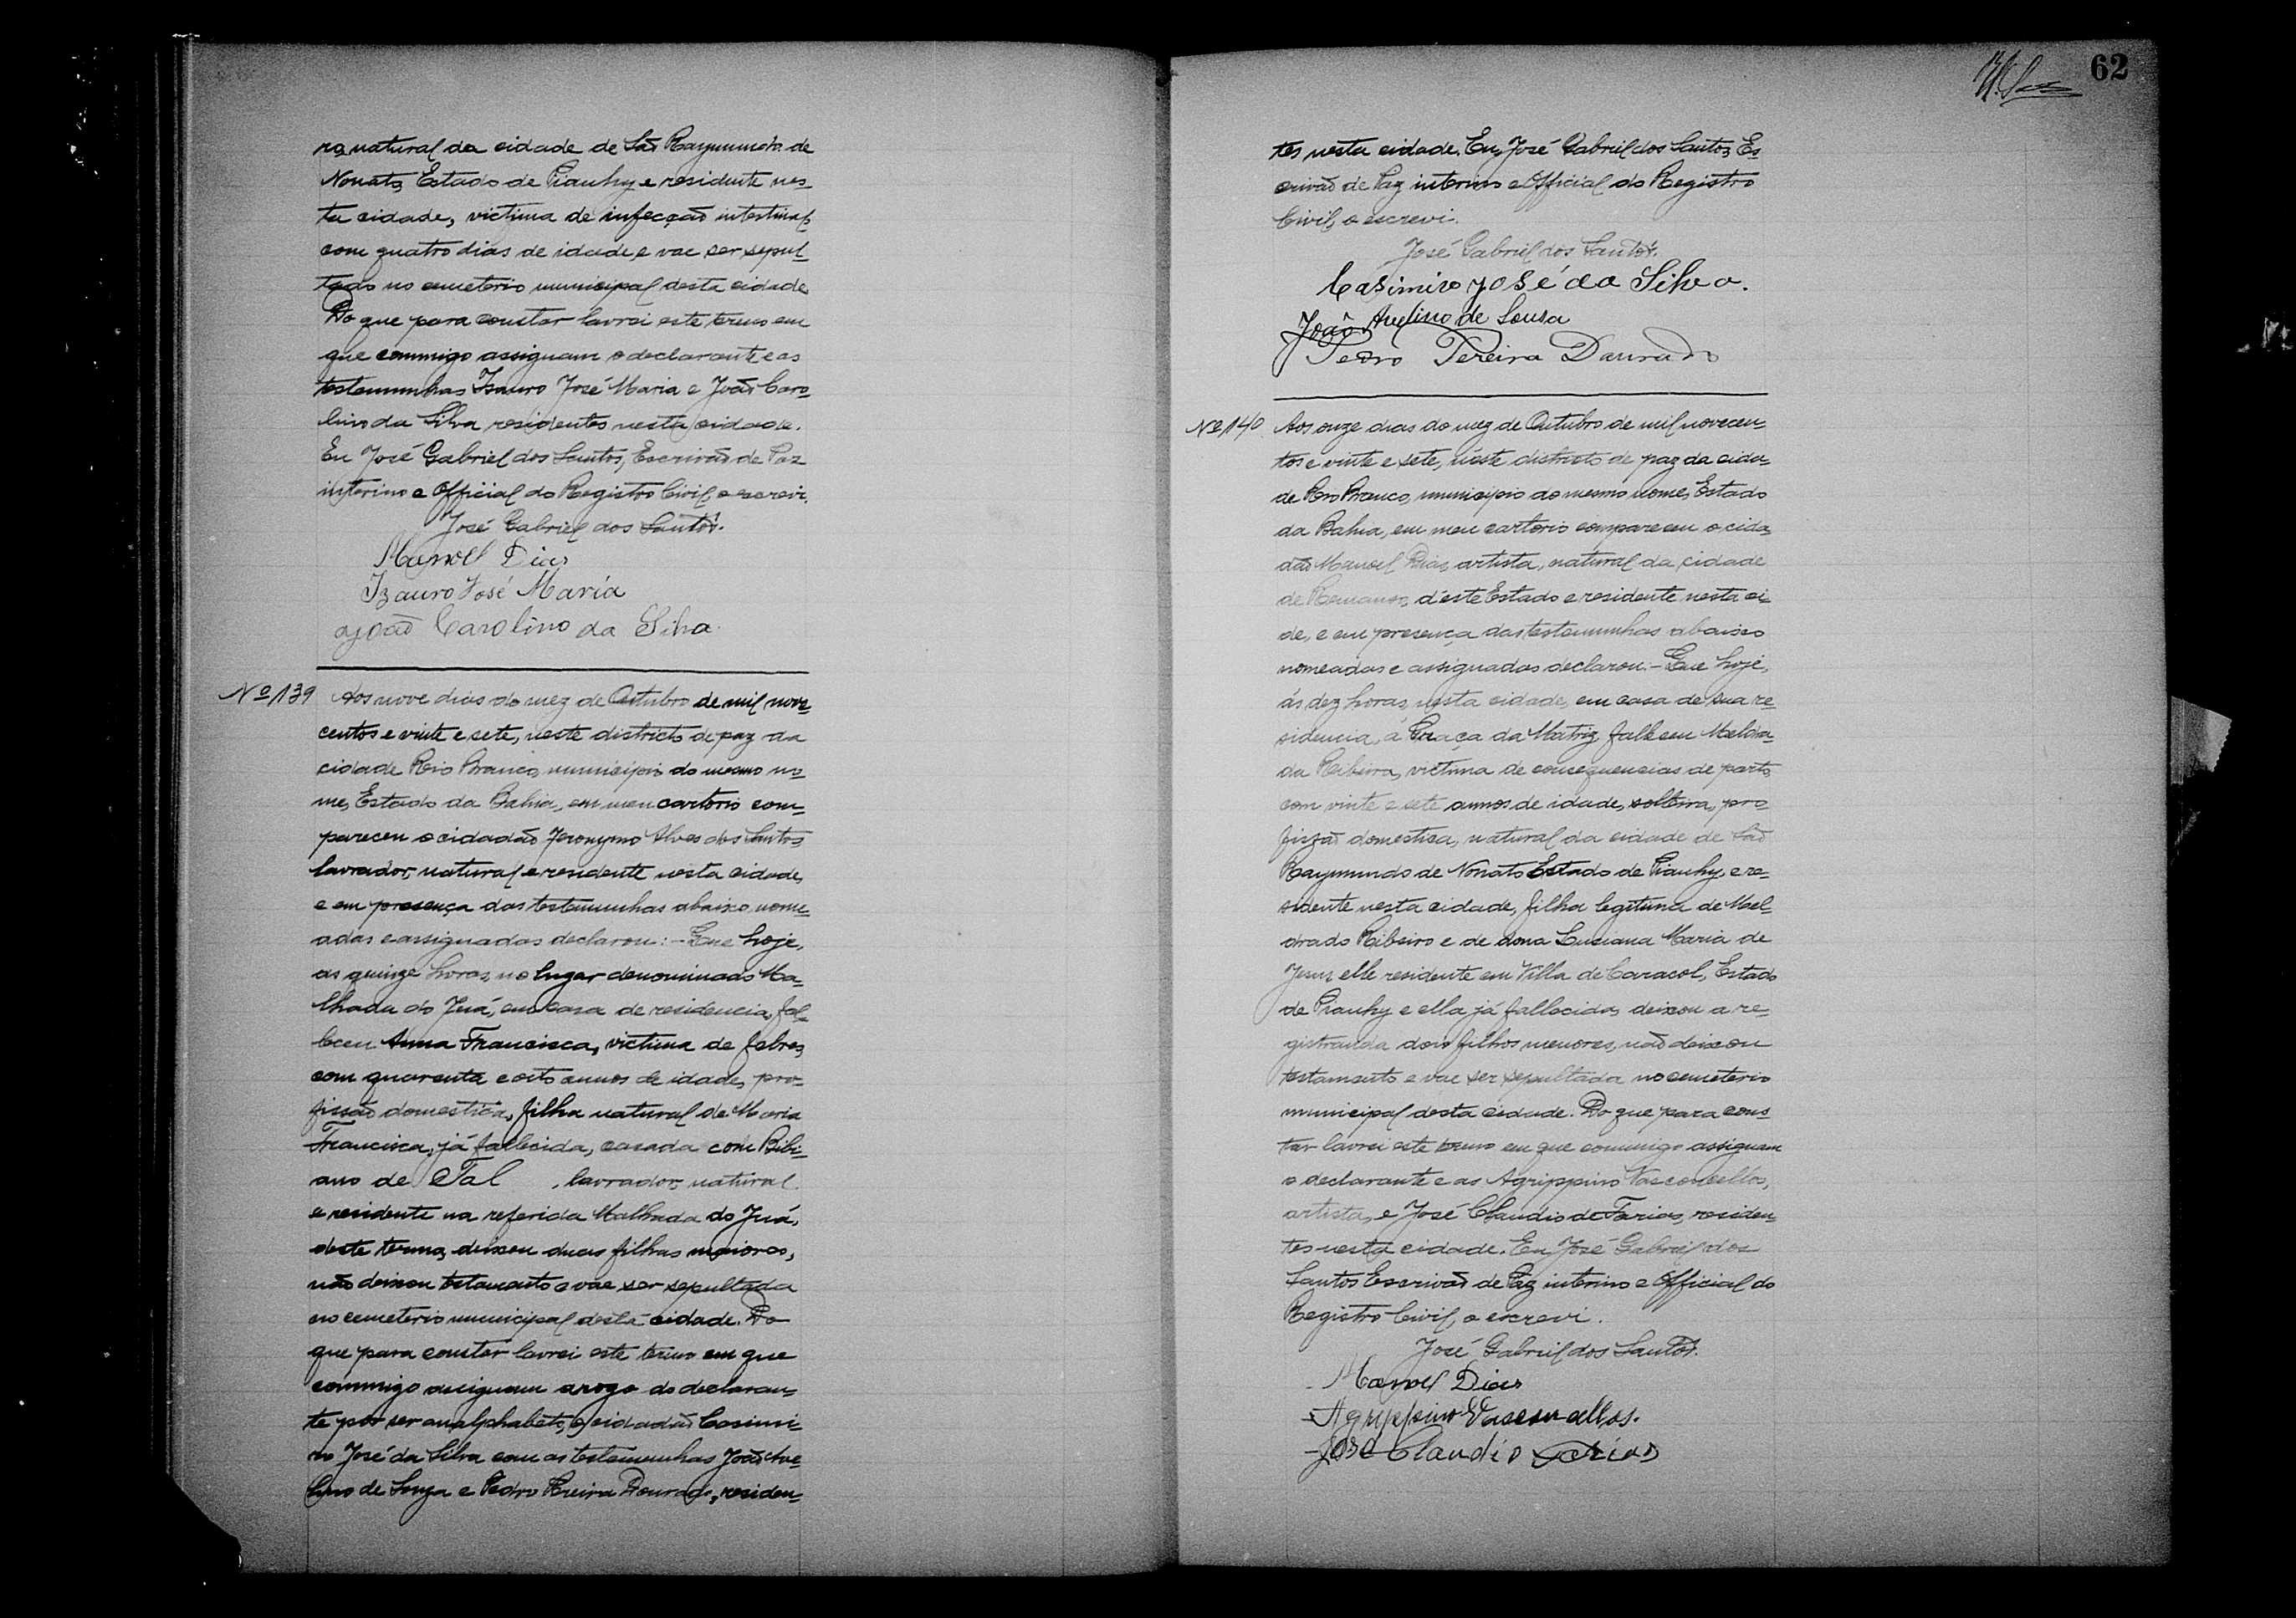 ra, natural da cidade de São Raymundo de
Nonato, Estado de Piauhy e residente nes-
ta cidade, victima de infecção intestinal,
com quatro dias de idade, e vae ser sepul-
tado no cemeterio municipal desta cidade.
Do que para constar lavrei este termo em
que commigo assignam o declarante e as
testemunhas Izauro José Maria e João Caro-
lino da Silva residentes nesta cidade.
Eu José Gabriel dos Santos, Escrivão de Paz
interino e Official do Registro Civil, o escrevi.
José Gabriel dos Santos.
Manoel Dias
Izauro José Maria
João Carolino da Silva.
Nº 139 Aos nove dias do mez de Outubro de mil nove-
centos e vinte e sete, neste districto de paz da
cidade Rio Branco, municipio do mesmo no-
me, Estado da Bahia, em meu cartorio com-
pareceu o cidadão Jeronymo Alves dos Santos,
lavrador, natural e residente nesta cidade,
e em presença das testemunhas abaixo nome-
adas e assignadas declarou: - Que hoje,
as quinze horas, no lugar denominado Ma-
lhada do Juá, em casa de residencia, fal-
leceu Anna Francisca, victima de febres,
com quarenta e oito annos de idade, pro-
fissão domestica, filha natural de Maria
Francisca, já fallecida, casada com Bibi-
ano de Tal , lavrador, natural
e residente na referida Malhada do Juá,
deste termo, deixou duas filhas maiores,
não deixou testamento e vae ser sepultada
no cemeterio municipal desta cidade. Do
que para constar lavrei este termo em que
commigo assignam arogo do declaran-
te por ser analphabeto, o cidadão Casimi-
ro José da Silva com as testemunhas João Ave-
lino de Souza e Pedro Pereira Dourado, residen-
62
tes nesta cidade. Eu, José Gabriel dos Santos, Es-
crivão de Paz interino e Official do Registro
Civil, o escrevi.
José Gabriel dos Santos.
Casimiro José da Silva.
João Avelino de Sousa
Pedro Pereira Dourado
Nº 140 Aos onze dias do mez de Outubro de mil novecen-
tos e vinte e sete, n'este districto de paz da cida-
de Rio Branco, municipio do mesmo nome, Estado
da Bahia, em meu cartorio compareceu o cida-
dão Manoel Dias, artista, natural da cidade
de Remanso, d'este Estado e residente nesta ci-
de, e em presença das testemunhas abaixo
nomeadas e assignadas declarou: - Que hoje,
ás dez horas, nesta cidade, em casa de sua re-
sidencia, á Praça da Matriz, falleceu Meldra-
da Ribeira, victima de consequencias de parto,
com vinte e sete annos de idade, solteira, pro-
fissão domestica, natural da cidade de São
Raymundo de Nonato Estado de Piauhy, e re-
sidente nesta cidade, filha legitima de Mel-
drado Ribeiro e de dona Luciana Maria de
Jesus, elle residente em Villa de Caracol, Estado
de Piauhy e ella já fallecida, deixou a re-
gistranda dois filhos menores, não deixou
testamento e vae ser sepultada no cemeterio
municipal desta cidade. Do que para cons-
tar lavrei este termo em que commigo assignam
o declarante e as Agrippino Vasconcellos,
artista, e José Claudio de Farias, residen-
tes nesta cidade. Eu, José Gabriel dos
Santos Escrivão de Paz interino e Official do
Registro Civil, o escrevi.
José Gabriel dos Santos.
Manoel Dias
Agrippino Vasconcellos.
José Claudio Farias